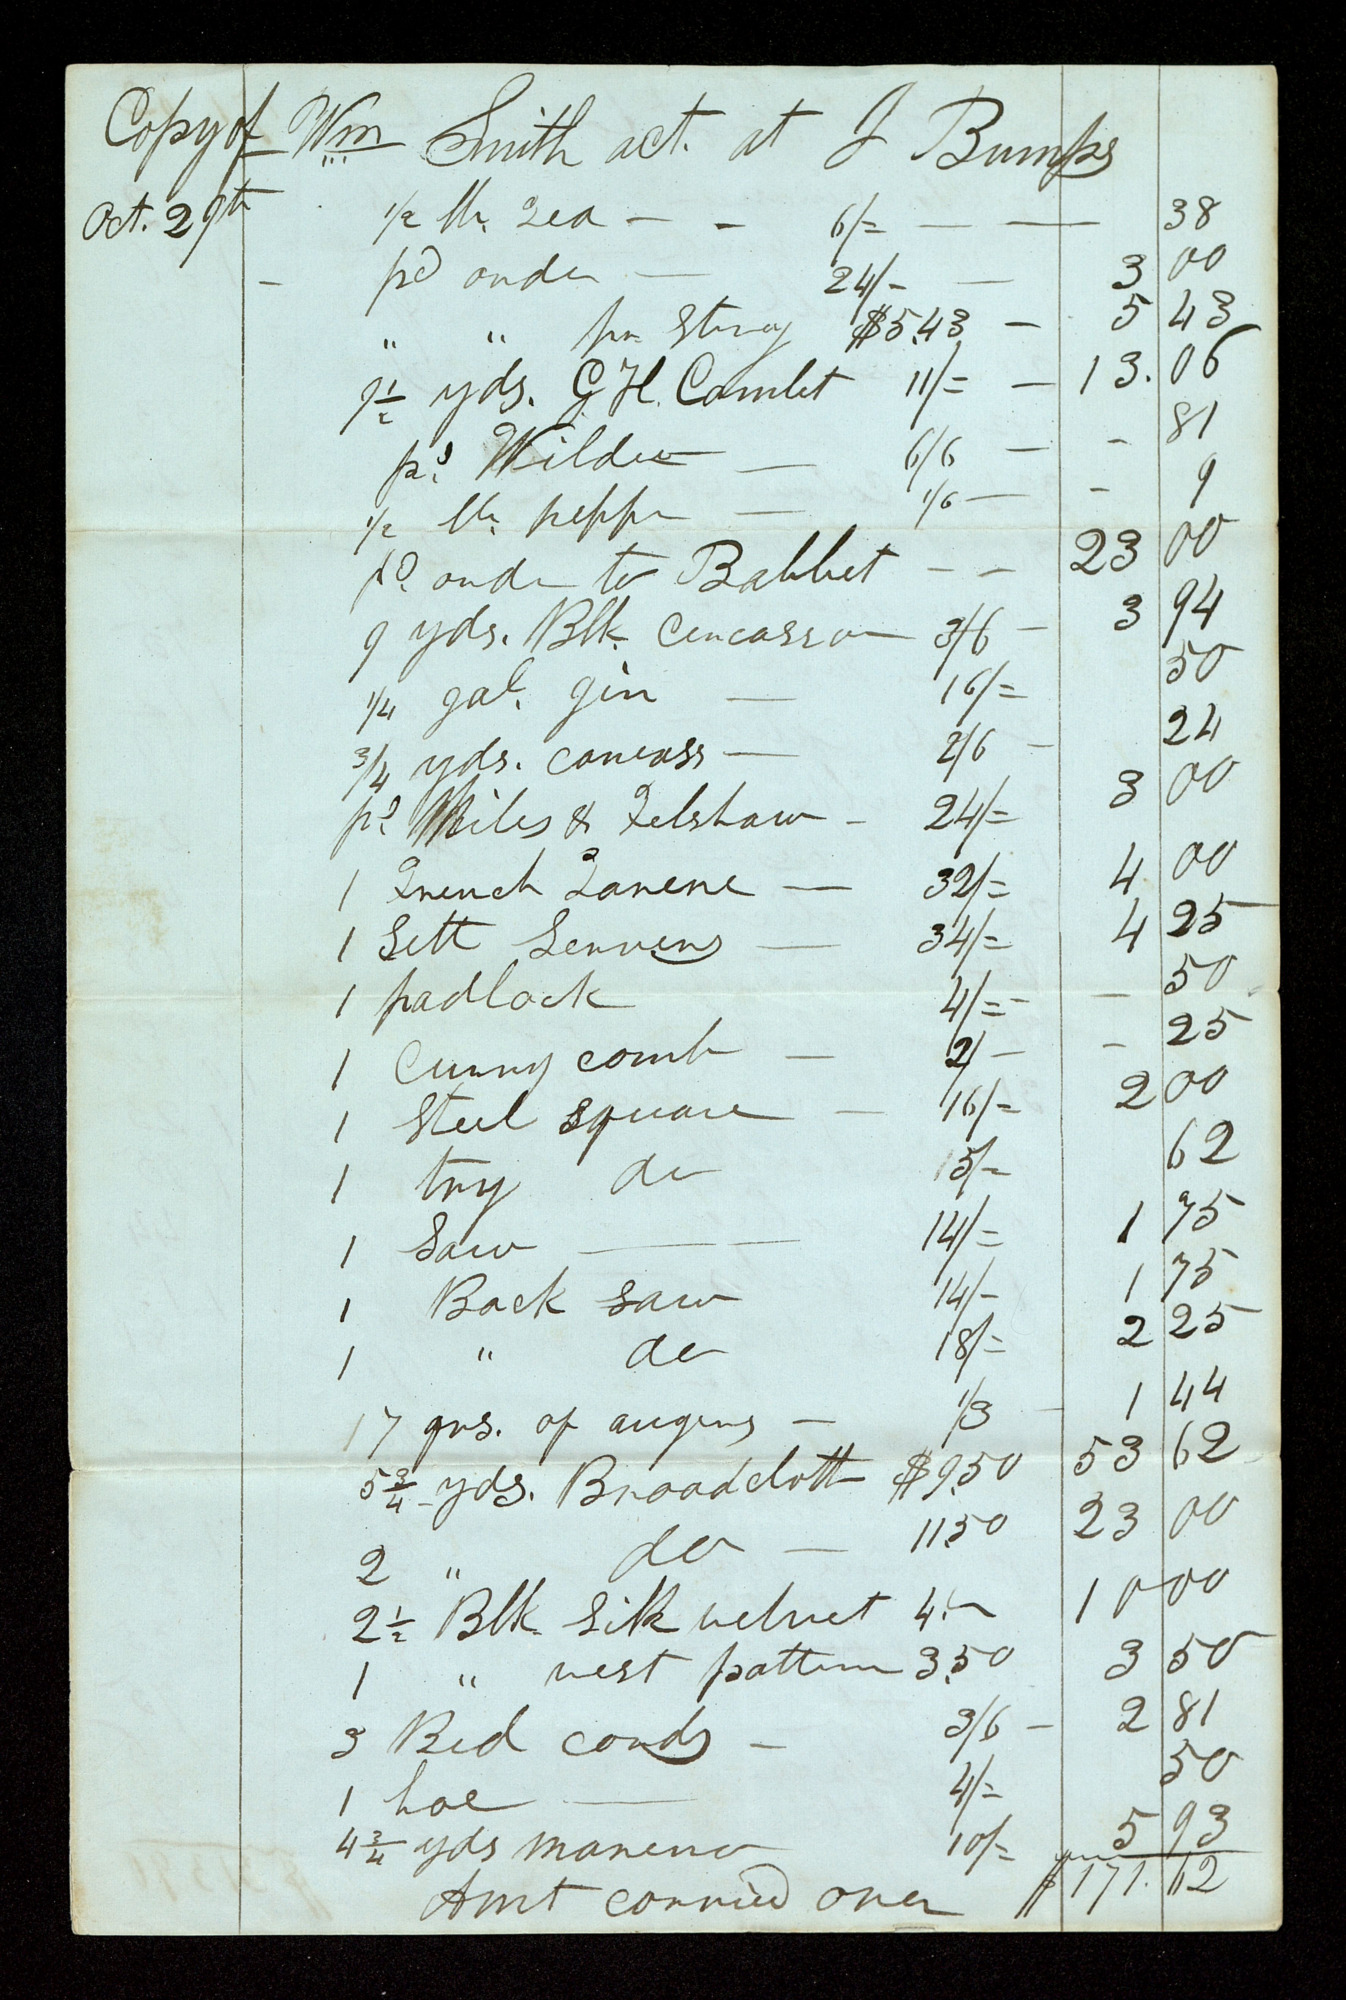 Copy of Wm Smith act. at J Bumps
Oct. 29th 1/2 lb. Tea — - 6/= — — 38
- pd order — 24/- — 3 00
" " pr Stray $5.43 — 5 43
9 1/2 yds. G.H. Camlet 11/= — 13.06
pd. Wilder — 6/6 — - 81
1/2 lb. peppr — 1/6 — - 9
pd. order to Babbet - - 23 00
9 yds. Blk. Circassian 3/6 - 3 94
1/4 gal. gin — 16/= 50
3/4 yds. canvass — 2/6 - 24
pd. Miles & Felshaw - 24/= 3 00
1 French 32/= 4 00
1 Sett — 34/= 4 25
1 padlock 4/== - 50
1 Curry comb — 2/- - 25
1 Steel square — 16/= 2 00
1 try do 5/- 62
1 Saw — 14/= 1 75
1 Back saw 14/- 1 75
1 " do 18/= 2 25
17 qrs. of augers — 1/3 - 1 44
5 3/4 yds. Broadcloth $9.50 53 62
2 " do — 11.50 23 00
2 1/2 Blk. Silk velvet 4.— 10 00
1 " vest pattern 3.50 3 50
3 Bed cords - 3/6 - 2 81
1 hoe — 4/= 50
4 3/4 yds mareno 10/= 5 93
Amt carried over $171.62